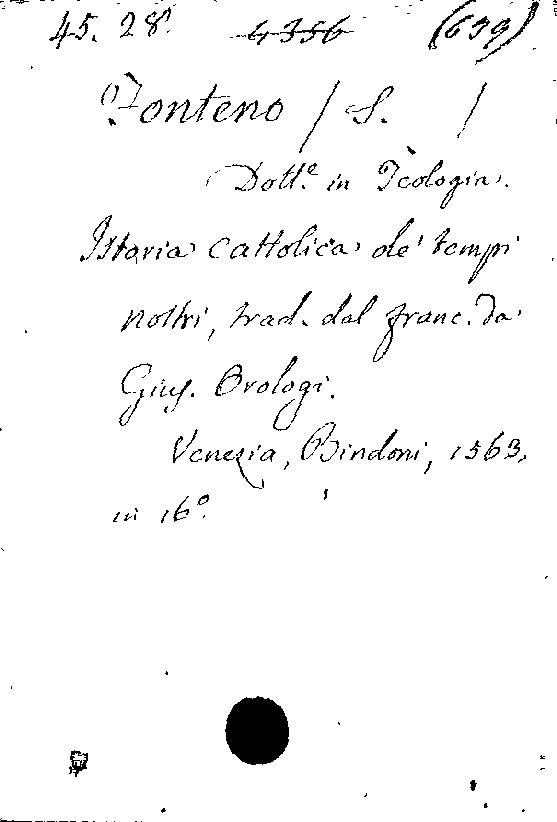 45. 28. 4356 (639)
Fonteno / S. /
Dott.e in Teologia.
Istoria cattolica de' tempi
nostri, trad. dal franc. da
Gius. Orologi.
Venezia, Bindoni, 1563,
in 16°.